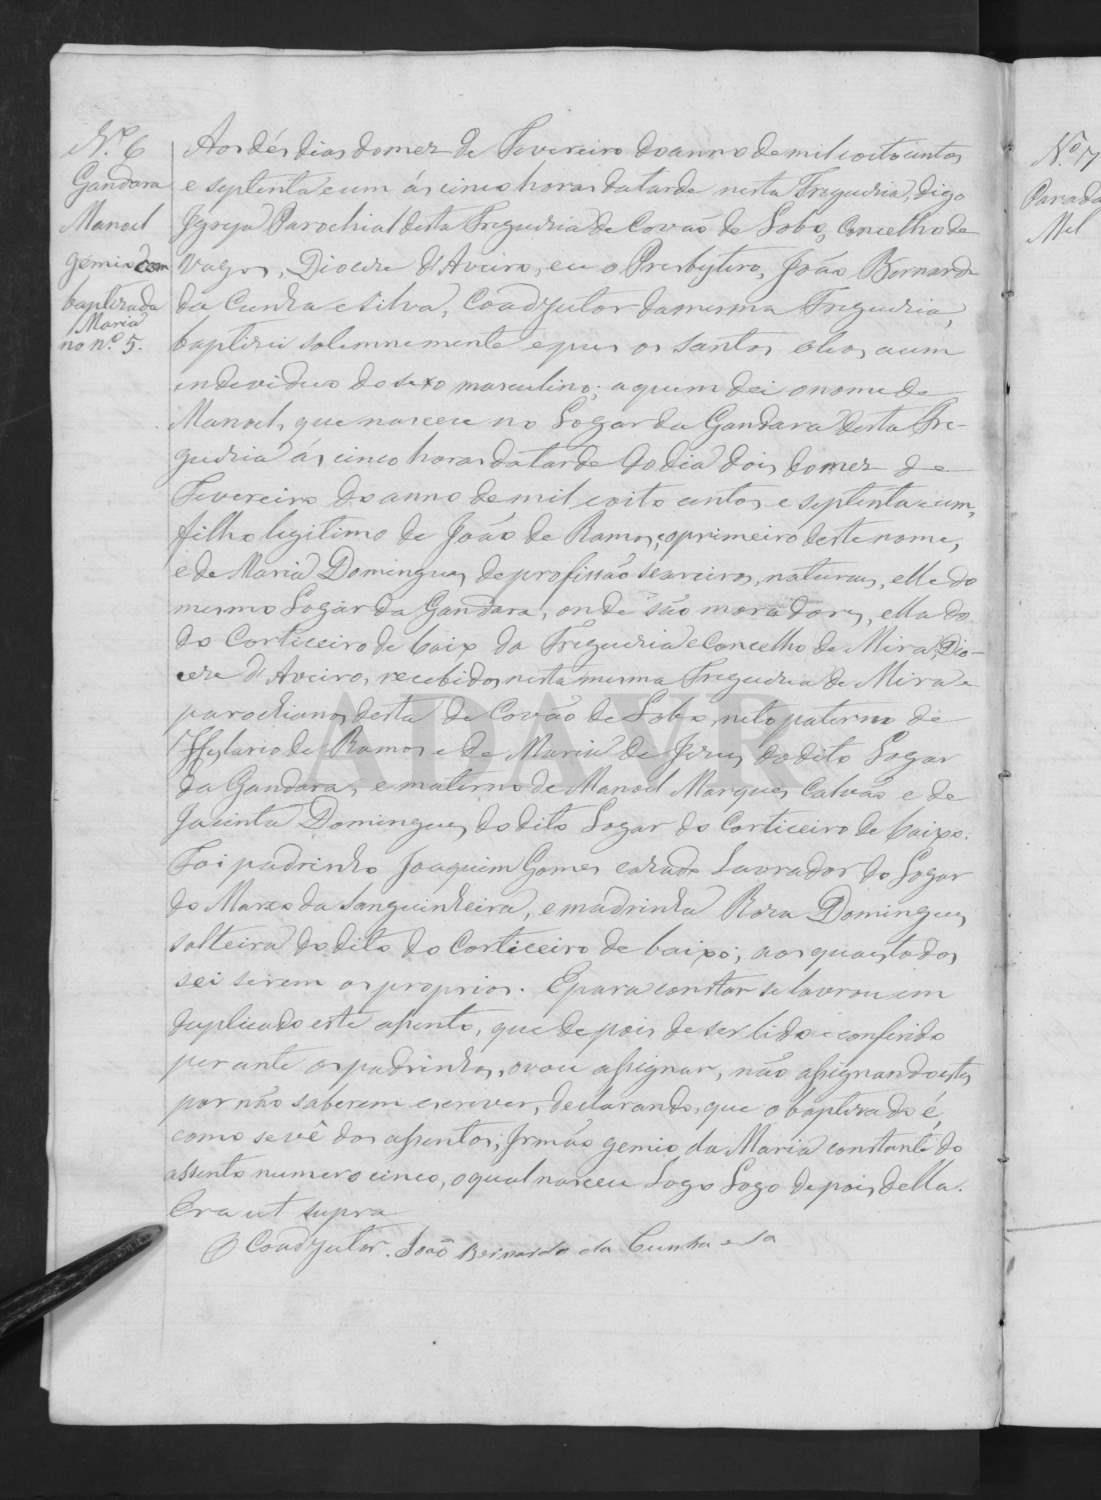 N.º 6
Gandara
Manoel
gemio com
baptizada
Maria
no nº 5.
Aos dés dias do mez de Fevereiro do anno de mil oito centos
e septenta e um ás cinco horas da tarde nesta Freguezia, digo
Igreja Parochial desta Freguezia de Covão de Lobo, Concelho de
Vagos, Diocese d'Aveiro, eu o Presbytero, João Bernardo
da Cunha e Silva, Coadjutor da mesma Freguezia,
baptizei solemnemente e pus os santos oleos a um
individuo do sexo masculino; a quem dei o nome de
Manoel, que nasceu no Logar da Gandara desta Fre-
guezia ás cinco horas da tarde do dia dois do mez de
Fevereiro do anno de mil e oito centos e septenta e um,
filho legitimo de João de Ramos, o primeiro deste nome,
e de Maria Domingues de profissão seareiros, naturaes, elle do
mesmo Logar da Gandara, onde são moradores, ella do
do Corticeiro de baixo da Freguezia e Concelho de Mira, Dio-
cese d'Aveiro, recebidos nesta mesma Freguezia de Mira e
parochianos desta de Covão de Lobo, neto paterno de
de Ramos e de Maria de Jesus do dito Logar
da Gandara, e materno de Manoel Marques Calvão e de
Jacinta Domingues do dito Logar do Corticeiro de baixo.
Foi padrinho Joaquim Gomes casado Lavrador do Logar
do Marco da Sanguinheira, e madrinha Roza Domingues
solteira do dito do Corticeiro de baixo; aos quaes todos
sei serem os proprios. E para constar se lavrou em
duplicado este assento, que depois de ser lido e conferido
perante os padrinhos, o vou assignar, não assignando estes
por não saberem escrever, declarando, que o baptizado é,
como se vê dos assentos, Irmão gemio da Maria constante do
assento numero cinco, o qual nasceu Logo Logo depois della.
Era ut supra
O Coadjutor. João Bernardo da Cunha e Sa
ADAVR
N.º 7
Parada
Mel